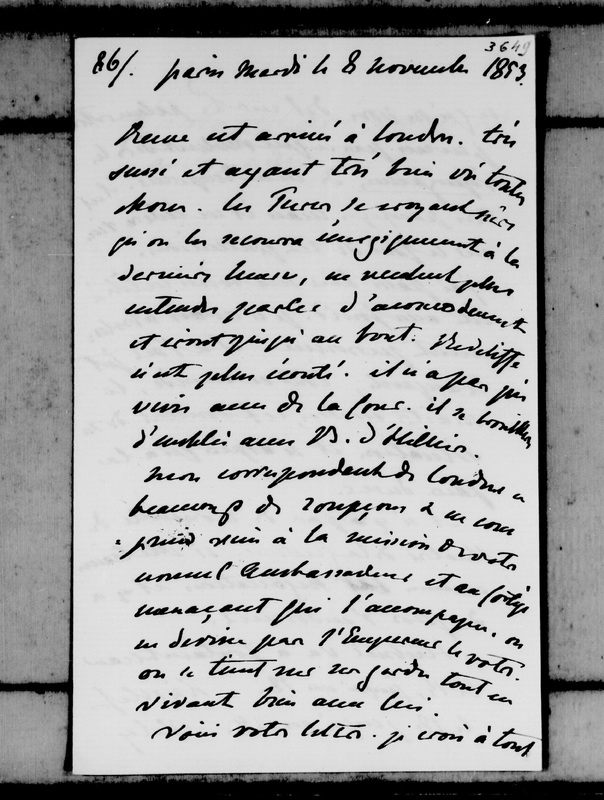 3649
86/. Paris Mardi le 8 novembre 1853.
Reeve est arrivé à Londres. très
 et ayant très bien vu toutes
choses. les Turcs se croyant sûrs
qu'on les secourra énergiquement à la
dernière heure, ne veulent plus
entendre parler d'accomodement
et iront jusqu'au bout. Redcliffe
n'est plus écouté. il n'a pas pu
 avec de la Cour. il se brouillera
d'emblée avec B. d'Hilliers.
mon correspondant de Londres a
beaucoup de soupçons & ne com
-prend rien à la mission de votre
nouvel Ambassadeur et au cortège
menaçant qui l'accompagne. on
ne devine pas l'Empereur le votre.
on se tient sur ses gardes tout en
vivant bien avec lui.
Voici votre lettre. je crois à tout